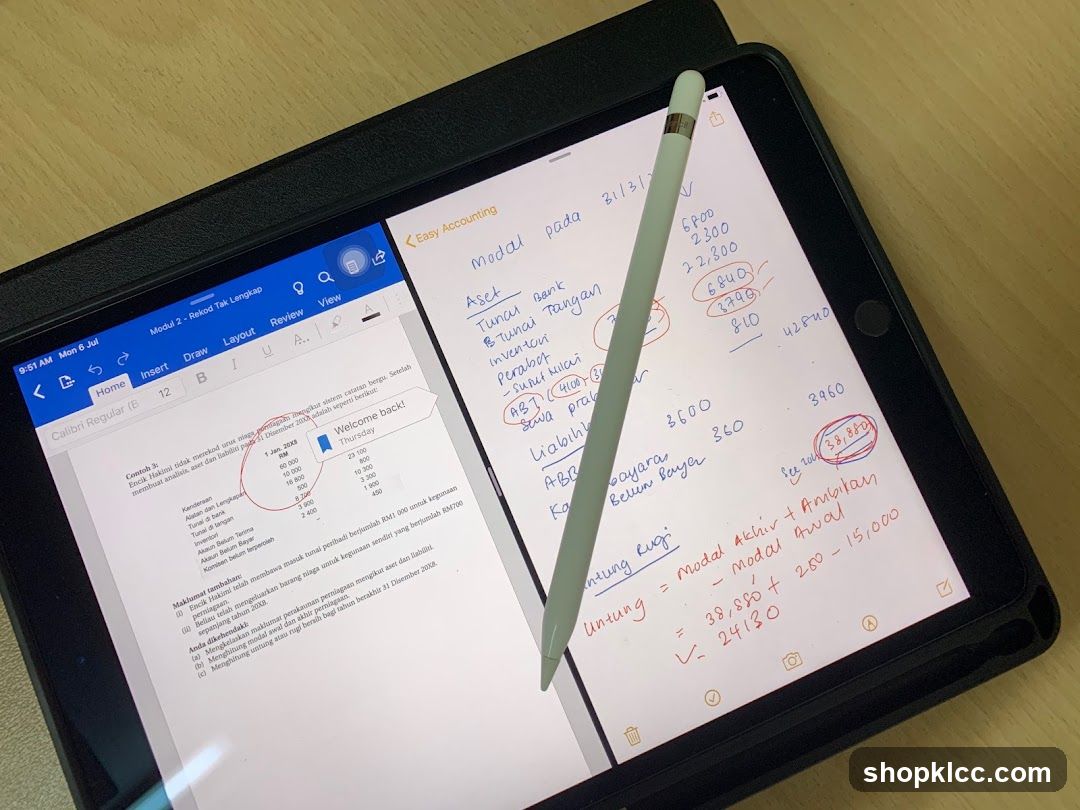 9:51 AM Mon 6 Jul
Modul 2 - Rekod Tak Lengkap
Home Insert Draw Layout Review View
Calibri Regular (B 12 B I U A
Contoh 3:
Encik Hakimi tidak merekod urus niaga perniagaan mengikut sistem catatan bergu. Setelah
membuat analisis, aset dan liabiliti pada 31 Disember 20X8 adalah seperti berikut:
1 Jan. 20X8
RM
Kenderaan 60 000
Alatan dan Lengkapan 10 000 23 100
Tunai di bank 16 800 800
Tunai di tangan 500 10 300
Inventori 8 700 3 300
Akaun Belum Terima 3 900 1 900
Akaun Belum Bayar 2 400 450
Komisen belum terperoleh -
Welcome back!
Thursday
Maklumat tambahan:
(i) Encik Hakimi telah membawa masuk tunai peribadi berjumlah RM1 000 untuk kegunaan
perniagaan.
(ii) Beliau telah mengeluarkan barang niaga untuk kegunaan sendiri yang berjumlah RM700
sepanjang tahun 20X8.
Anda dikehendaki:
(a) Mengkelaskan maklumat perakaunan perniagaan mengikut aset dan liabiliti.
(b) Menghitung modal awal dan akhir perniagaan.
(c) Menghitung untung atau rugi bersih bagi tahun berakhir 31 Disember 20X8.
Easy Accounting
Modal pada 31/3/
Aset
Tunai Bank 6800
Tunai Tangan 2300
Inventori 22,300
Perabot 6840
- Susut Nilai 3790
ABT (4100- 810
Sewa 42840
Liabiliti
ABB 3600
360 3960
Belum Bayar
38,880
Untung Rugi
Untung = Modal Akhir + Ambilan
- Modal Awal
= 38,880 + 250 - 15,000
= 24130
shopklcc.com